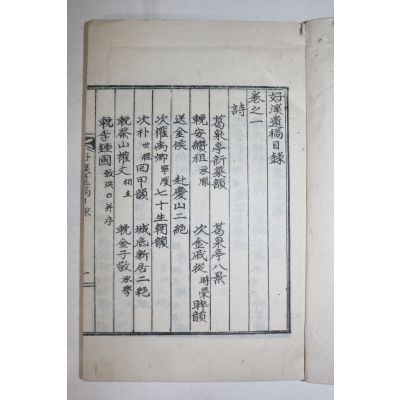 好溪遺稿目錄
卷之一
詩
葛泉亭新築韻 葛泉亭八景
輓安纘祖 次金戚從時榮聯韻
送金候 赴慶山二絶
次權禹卿 七十生朝韻
次朴世 回甲韻 城底新居二絶
輓蔡山權丈相 輓金子敬永學
輓李鍾國 并序